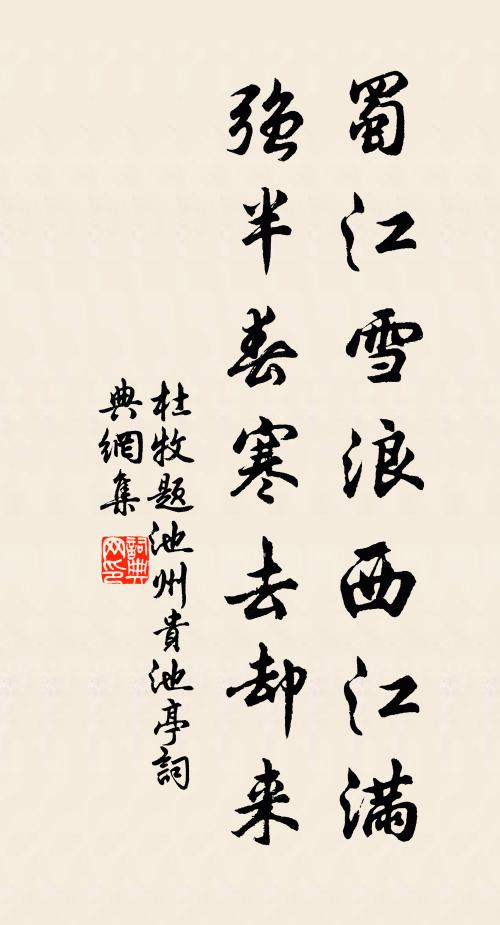 蜀江雪浪西江满
强半春寒去却来
杜牧题池州貴池亭詞
典網集
詞典网印